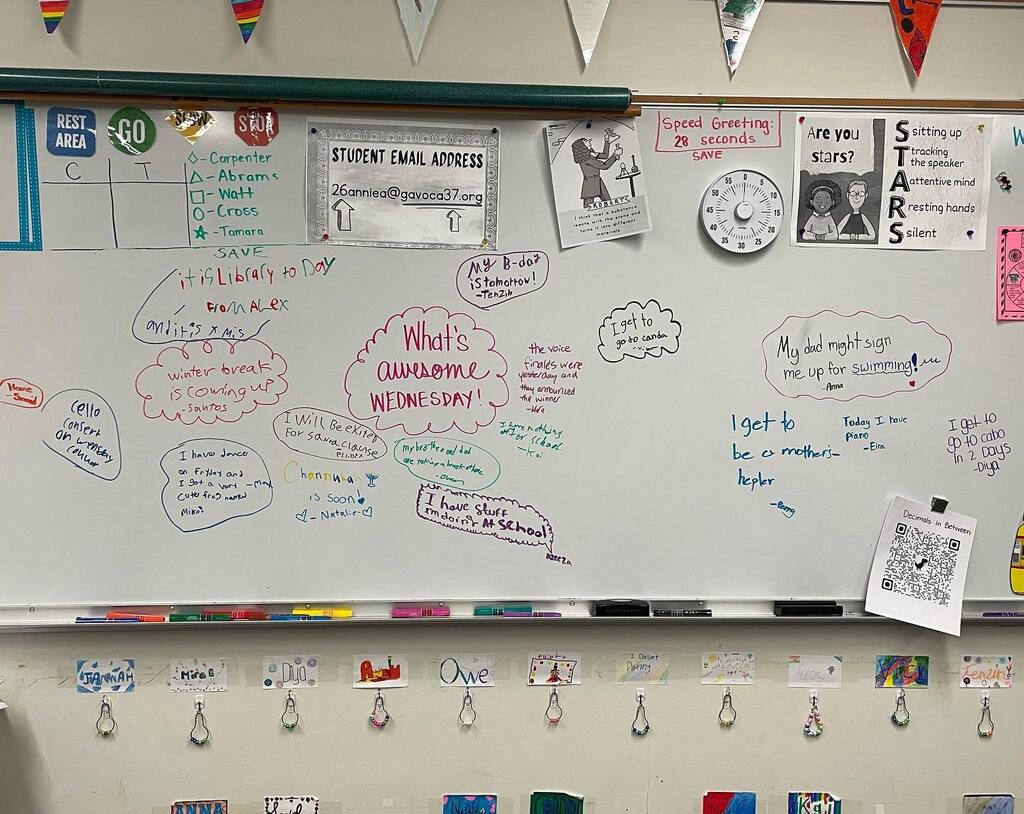 REST
AREA
GO
SLOW
STOP
C T
- Carpenter
- Abrams
- Watt
- Cross
- Tamara
SAVE
STUDENT EMAIL ADDRESS
26anniea@gavoca37.org
ROBERT
I think that a substance
leaves with the steam and
turns it into different
materials
Speed Greeting:
28 seconds
SAVE
55 0 5
50 10
45 15
40 20
35 30 25
Are you
stars?
Sitting up
Tracking
the speaker
Attentive mind
Resting hands
Silent
it is Library to Day
From ALEX
and it is x mis
My B-day
is tomorrow!
-Tenzin
What's
awesome
WEDNESDAY!
winter break
is coming up
-Santos
Home
cello
consert
on
I have dance
on Fryday and
I got a
cute frog named
Miko!
I Will Be exited
For santa clause
Channukah
is soon!
-Natalie-
the voice
finale's were
yesterday and
they announced
the winner
I have nothing
after school.
-Kai
my brother and dad
are taking a break
-Owen
I have stuff
I'm doing At school
I get to
go to canda
My dad might sign
me up for swimming!
-Anna
I get to
be a mother's-
hepler
Today I have
piano
-Eira
I get to
go to cabo
in 2 Days
-Diya
Decimals in Between
JANNAH
Mira
Owe
Tenzin
ANNA
Natalie
Kai